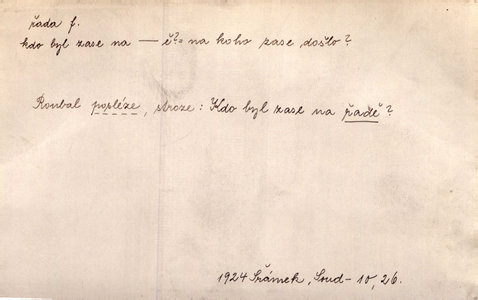 řada f.
kdo byl zase na — ě? = na koho zase došlo?
Roubal posléze, stroze: Kdo byl zase na řadě?
1924 Šrámek, Soud - 10, 26.